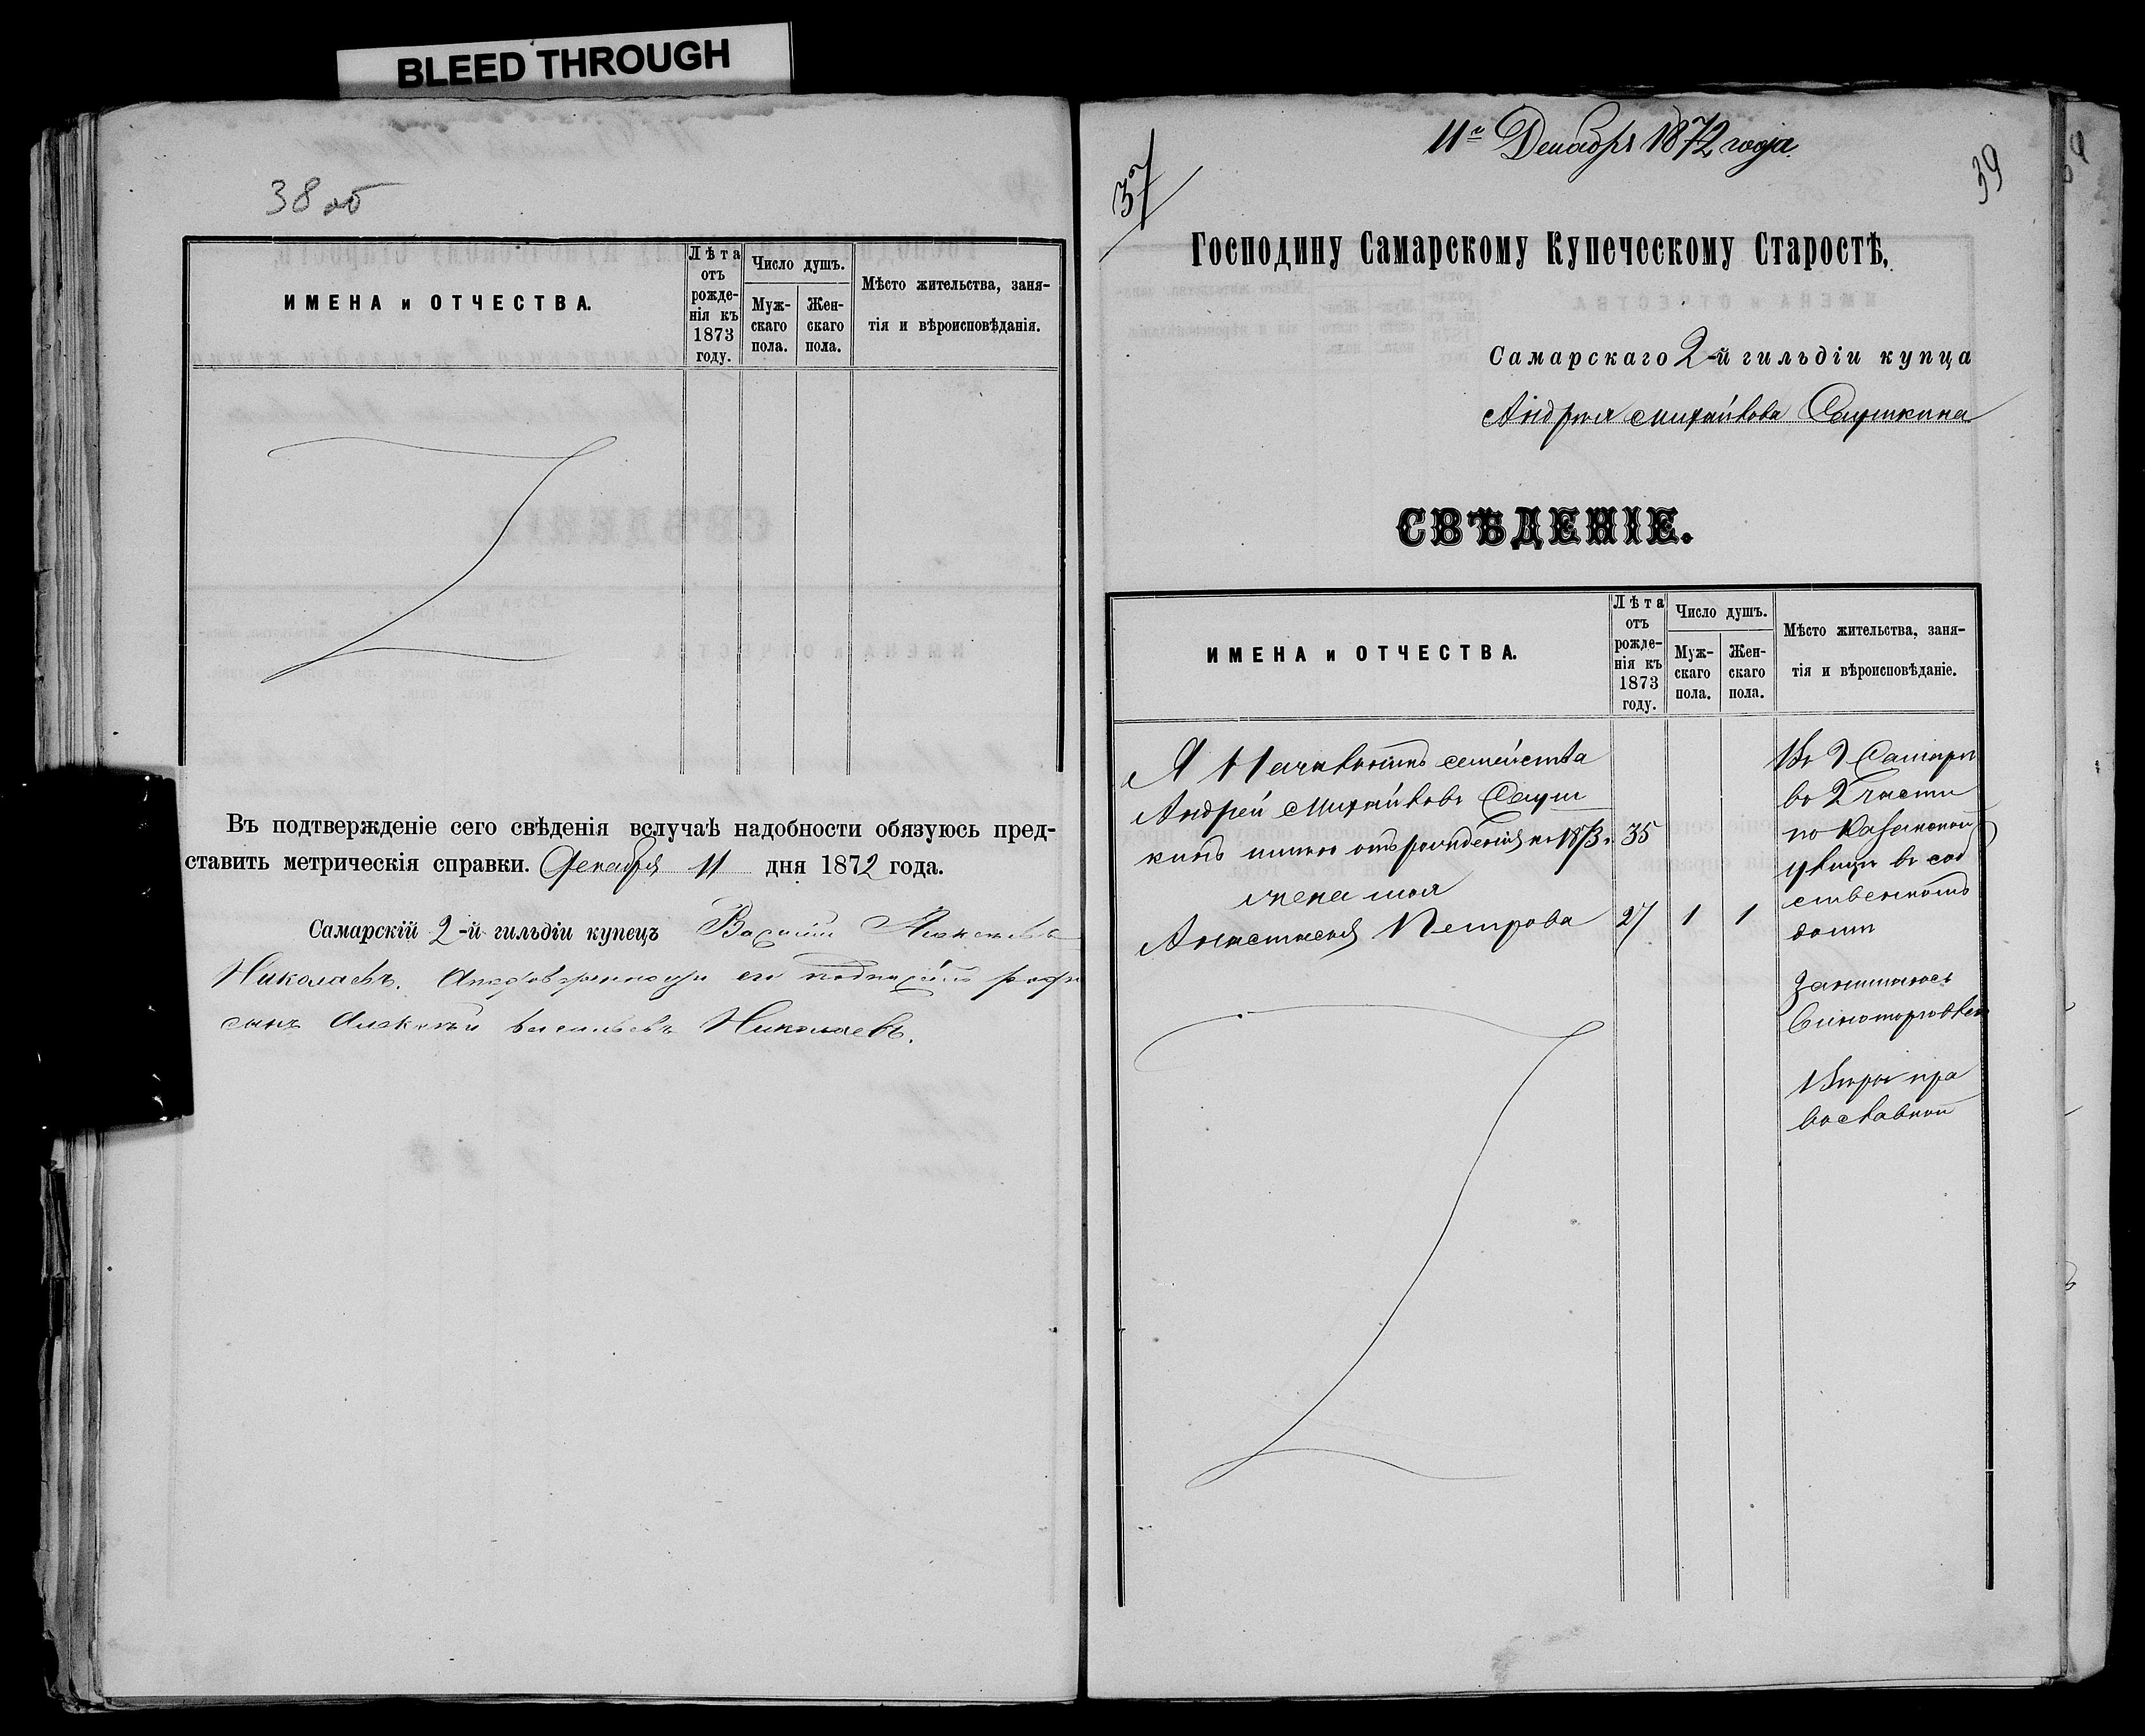 BLEED THROUGH
38 об
ИМЕНА и ОТЧЕСТВА.
Лѣта отъ рожде-
нія къ 1873 году.
Число душъ.
Муж-
скаго
пола.
Жен-
скаго
пола.
Мѣсто жительства, заня-
тія и вѣроисповѣданія.
Въ подтвержденіе сего свѣденія вслучаѣ надобности обязуюсь пред-
ставить метрическія справки. Декабря 11 дня 1872 года.
Самарскій 2-й гильдіи купецъ Василій
Николаевъ.
сынъ Алексѣй Васильевъ Николаевъ.
11го Декабря 1872 года.
37
39
Господину Самарскому Купеческому Старостѣ,
Самарскаго 2-й гильдіи купца
Андрея Михайлова Саушкина
СВѢДЕНІЕ.
ИМЕНА и ОТЧЕСТВА.
Лѣта
отъ
рожде-
нія къ
1873
году.
Число душъ.
Муж-
скаго
пола.
Жен-
скаго
пола.
Мѣсто жительства, заня-
тія и вѣроисповѣданіе.
Я Начальникъ семейства
Андрей Михайловъ Сауш
кинъ имѣю отъ рожденія къ 1873 г. 35
жена моя
Анастасія Петрова 27 1 1
Въ г Самарѣ
во 2 части
по Казанской
улицѣ въ соб
ственномъ
домѣ
Занимаюсь
виноторговлей
Вѣры пра
вославной